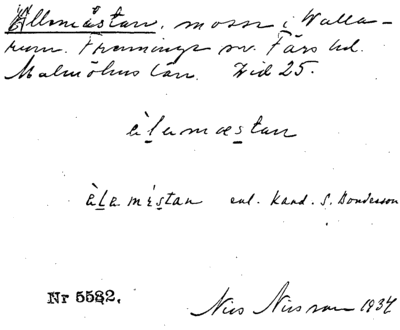 Ällemåstan, mosse i Walla-
rum. Frenninge sn. Färs hd.
Malmöhus län. Wid 25.
èlamœstan
èla mèstan enl. Kand. S. Bonderson
Nr 5582.
Nils Nilsson 1934